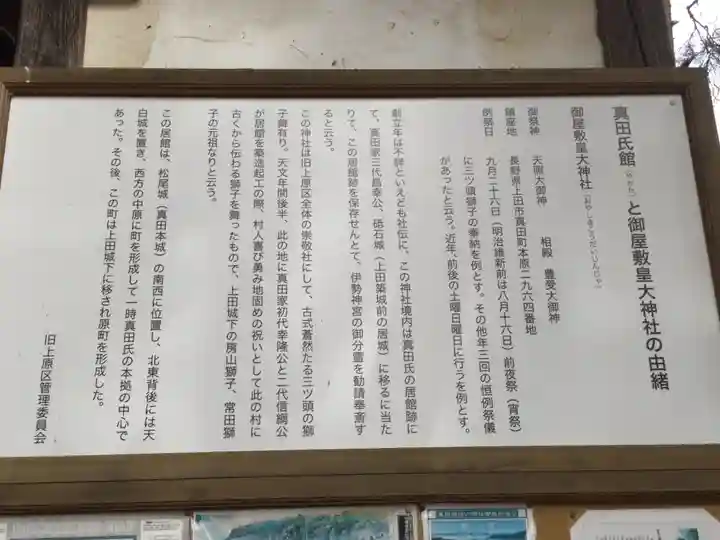 真田氏館（やかた）と御屋敷皇大神社の由緒
御屋敷皇大神社（おやしきこうたいじんじゃ）
御祭神　天照大御神　相殿　豊受大御神
鎮座地　長野県上田市真田町本原二九六四番地
例祭日　九月二十六日（明治維新前は八月十六日）前夜祭（宵祭）
に三ツ頭獅子の奉納を例とす。その他年三回の恒例祭儀
があったと云う。近年、前後の土曜日曜日に行うを例とす。
創立年は不詳といえども社伝に、この神社境内は真田氏の居館跡に
て、真田家三代昌幸公、砥石城（上田築城前の居城）に移るに当た
りて、この居館跡を保存せんとて、伊勢神宮の御分霊を勧請奉斎す
ると云う。
この神社は旧上原区全体の崇敬社にして、古式蒼然たる三ツ頭の獅
子舞有り。天文年間後半、此の地に真田家初代幸隆公と二代信綱公
が居館を築造起工の際、村人喜び勇み地固めの祝いとして此の村に
古くから伝わる獅子を舞ったもので、上田城下の房山獅子、常田獅
子の元祖なりと云う。
この居館は、松尾城（真田本城）の南西に位置し、北東背後には天
白城を置き、西方の中原に町を形成して一時真田氏の本拠の中心で
あった。その後、この町は上田城下に移され原町を形成した。
旧上原区管理委員会